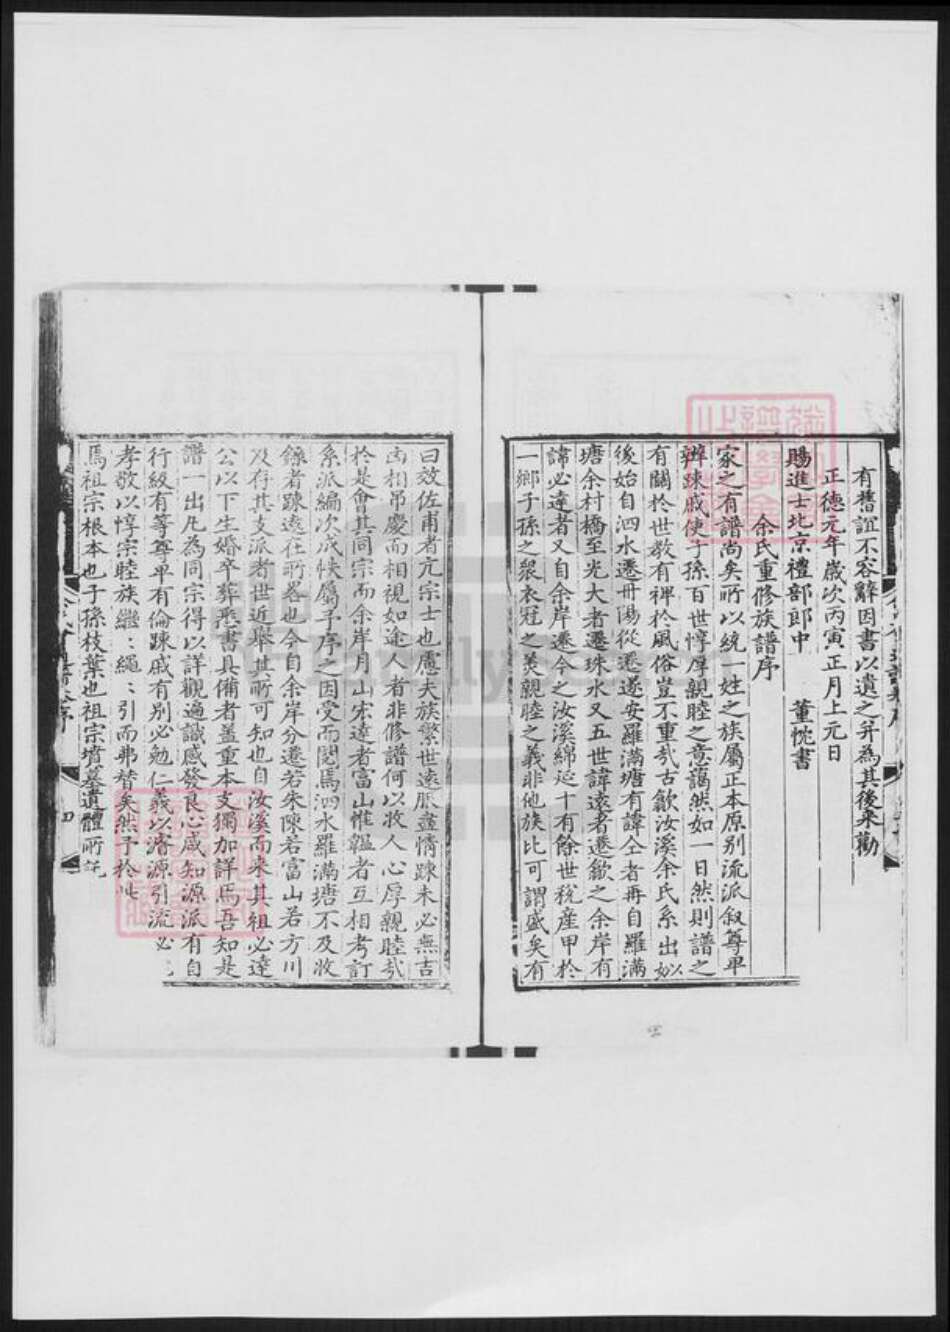 有舊誼不容辭因書以遺之并為其後來勸
正德元年歲次丙寅正月上元日
賜進士北京禮部郎中　董忱書
余氏重修族譜序
家之有譜尚矣所以統一姓之族屬正本原别流派叙尊卑
辨踈戚使子孫百世惇厚親睦之意藹然如一日然則譜之
有關於世教有裨於風俗豈不重㢤古歙汝溪余氏系出姒
後始自泗水遷丹陽從遷遂安羅滿塘有諱仝者再自羅滿
塘余村橋至光大者遷珠水又五世諱遠者遷歙之余岸有
諱必達者又自余岸遷今之汝溪綿延十有餘世税産甲於
一鄉子孫之衆衣冠之美親睦之義非他族比可謂盛矣有
曰效佐甫者亢宗士也慮夫族繁世遠脈盡情踈未必無吉
凶相吊慶而相視如途人者非修譜何以收人心厚親睦㢤
於是會其同宗而余岸月山宋達者富山惟韞者互相考訂
系派編次成帙屬予序之因受而閱焉泗水羅滿塘不及收
錄者踈遠在所畧也今自余岸分遷若朱陳若富山若方川
及存其支派者世近舉其所可知也自汝溪而来其祖必達
公以下生婚卒葬悉書具備者蓋重本支獨加詳焉吾知是
譜一出凡為同宗得以詳觀遍識感發良心咸知源派有自
行級有等尊卑有倫踈戚有别必勉仁義以濬源引流必
孝敬以惇宗睦族繼：繩：引而弗替矣然予於此
焉祖宗根本也子孫枝葉也祖宗墳墓遺體所託